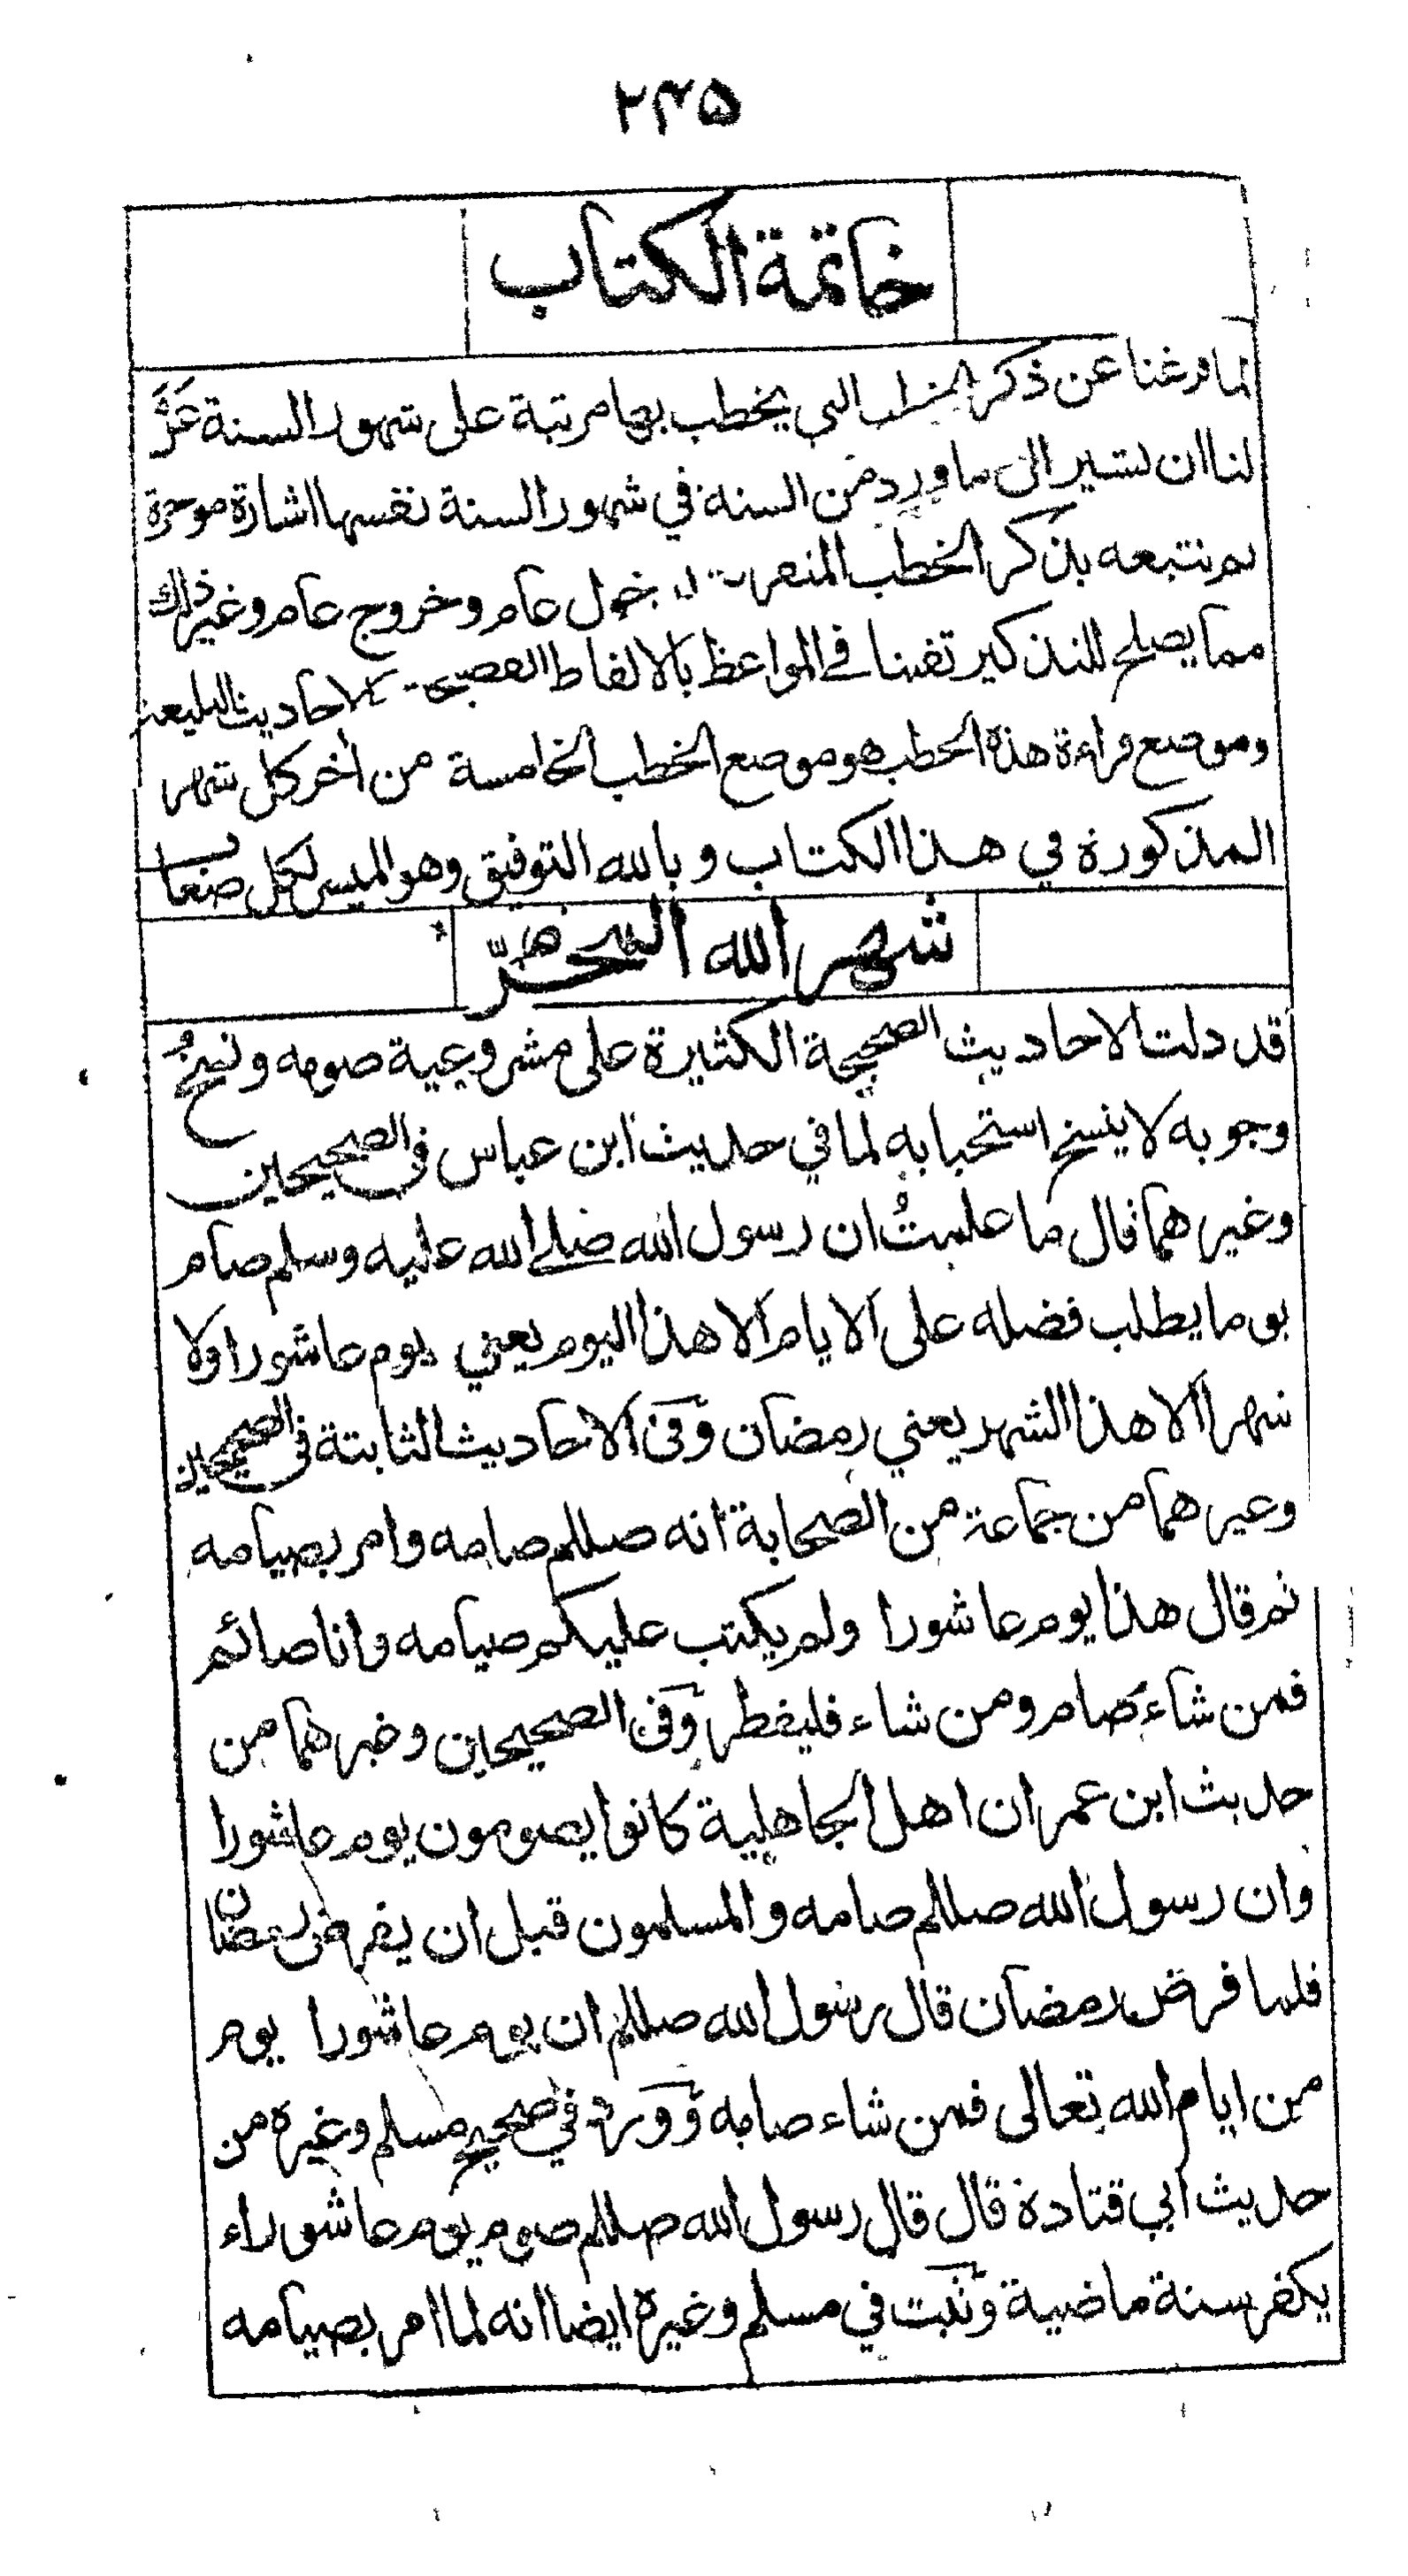 ٢٣٥
خاتمة الكتاب
لما فرغنا عن ذكر التي يخطب بها مرتبة على شهور السنة عَنَّ
لنا ان نشير الى ما ورد من السنة في شهور السنة نفسها اشارة موجزة
ثم نتبعه بذكر الخطب دخول عام وخروج عام وغير ذلك
مما يصلح للتذكير تفننا في المواعظ بالالفاظ الفصيحة الاحاديث البليغة
وموضع قراءة هذه الخطب هو موضع الخطب الخامسة من آخر كل شهر
المذكورة في هذا الكتاب وبالله التوفيق وهو الميسر لكل
شهر الله المحرّم
قد دلت الاحاديث الصحيحة الكثيرة على مشروعية صومه ونسخُ
وجوبه لا ينسخ استحبابه لما في حديث ابن عباس في الصحيحين
وغيرهما قال ما علمتُ ان رسول الله صلى الله عليه وسلم صام
يوما يطلب فضله على الايام الا هذا اليوم يعني يوم عاشورا ولا
شهرا الا هذا الشهر يعني رمضان وفى الاحاديث الثابتة فى الصحيحين
وغيرهما من جماعة من الصحابة انه صللم صامه وامر بصيامه
ثم قال هذا يوم عاشورا ولم يكتب عليكم صيامه وانا صائم
فمن شاء صام ومن شاء فليفطر وفى الصحيحين وغيرهما من
حديث ابن عمر ان اهل الجاهلية كانوا يصومون يوم عاشورا
وان رسول الله صللم صامه والمسلمون قبل ان يفرض رمضان
فلما فرض رمضان قال رسول الله صللم ان يوم عاشورا يوم
من ايام الله تعالى فمن شاء صامه وورد في صحيح مسلم وغيره من
حديث ابي قتادة قال قال رسول الله صللم صوم يوم عاشوراء
يكفر سنة ماضية وثبت في مسلم وغيره ايضا انه لما امر بصيامه